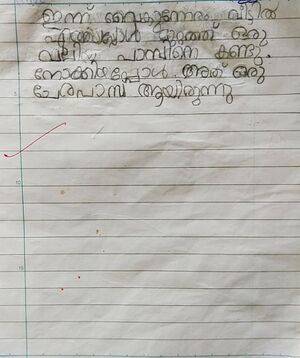 ഇന്ന് വൈകുന്നേരം വീട്ടിൽ
എത്തിയപ്പോൾ മുറ്റത്ത് ഒരു
വലിയ പാമ്പിനെ കണ്ടു.
നോക്കിയപ്പോൾ അത് ഒരു
ചേരപാമ്പ് ആയിരുന്നു